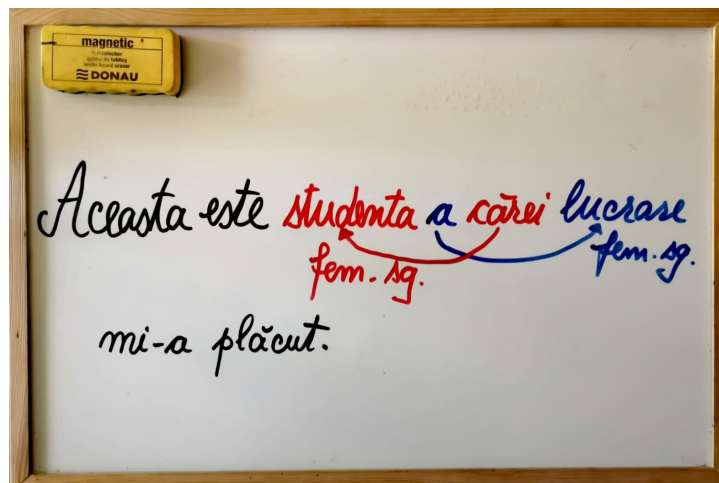 magnetic
DONAU
Aceasta este studenta a cărei lucrare
fem. sg.
fem. sg.
mi-a plăcut.